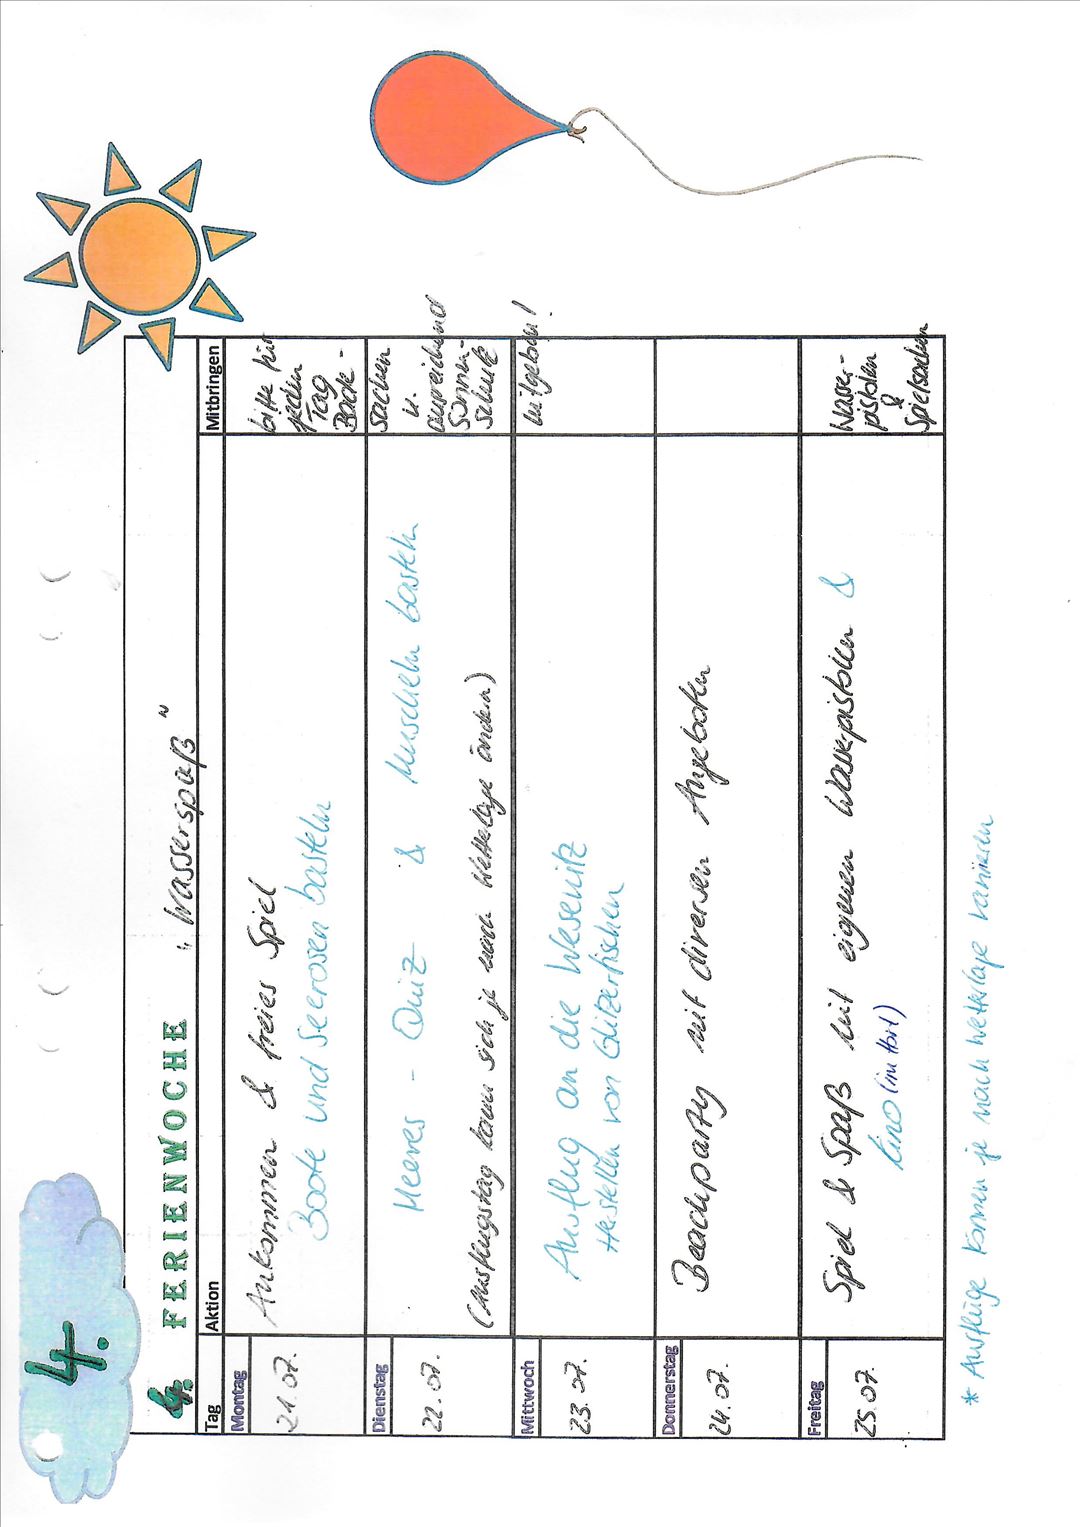 4.
4. FERIENWOCHE „Wasserspaß"
Tag Aktion Mitbringen
Montag
21.07.
Ankommen & freies Spiel
Boote und Seerosen basteln
bitte für
jeden
Tag
Bade-
Dienstag
22.07.
Meeres-Quiz & Muscheln basteln
(Ausflugstag kann sich je nach Wetterlage ändern)
sachen
u.
ausreichend
Sonnen-
schutz
Mittwoch
23.07.
Ausflug an die Wesenitz
Herstellen von Glitzerfischen
mitgeben!
Donnerstag
24.07.
Beachparty mit diversen Angeboten
Freitag
25.07.
Spiel & Spaß mit eigenen Wasserpistolen &
Kino (im Hort)
Wasser-
pistolen
&
Spielsachen
* Ausflüge können je nach Wetterlage variieren